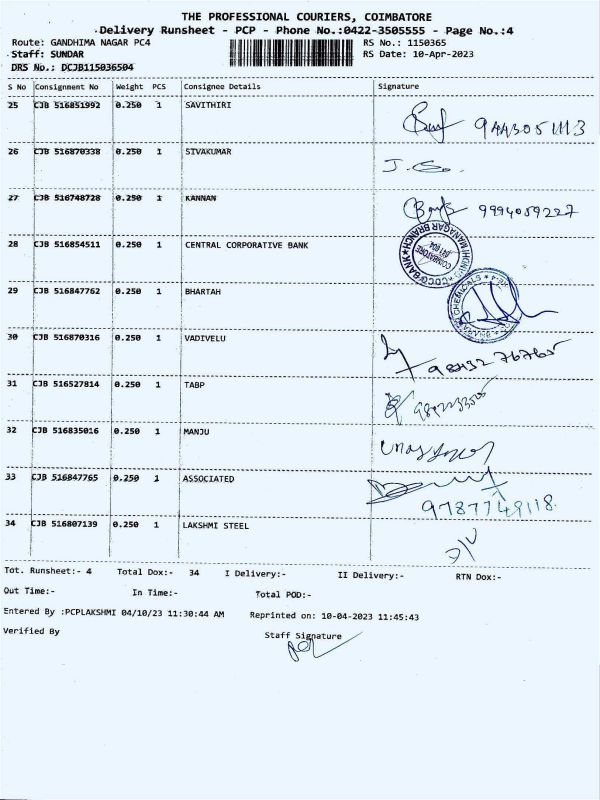 THE PROFESSIONAL COURIERS, COIMBATORE
Delivery Runsheet - PCP - Phone No.:0422-3505555 - Page No.:4
Route: GANDHIMA NAGAR PC4 RS No.: 1150365
Staff: SUNDAR RS Date: 10-Apr-2023
DRS No.: DCJB115036504
S No Consignment No Weight PCS Consignee Details Signature
25 CJB 516851992 0.250 1 SAVITHIRI
9443051113
26 CJB 516870338 0.250 1 SIVAKUMAR
27 CJB 516748728 0.250 1 KANNAN 9994059227
28 CJB 516854511 0.250 1 CENTRAL CORPORATIVE BANK
GANDHIMANAGAR BRANCH
COIMBATORE
641 004
29 CJB 516847762 0.250 1 BHARTAH
CHEMICALS
30 CJB 516870316 0.250 1 VADIVELU
31 CJB 516527814 0.250 1 TABP
32 CJB 516835016 0.250 1 MANJU
33 CJB 516847765 0.250 1 ASSOCIATED
9787749118
34 CJB 516807139 0.250 1 LAKSHMI STEEL
Tot. Runsheet:- 4 Total Dox:- 34 I Delivery:- II Delivery:- RTN Dox:-
Out Time:- In Time:- Total POD:-
Entered By :PCPLAKSHMI 04/10/23 11:30:44 AM Reprinted on: 10-04-2023 11:45:43
Verified By Staff Signature